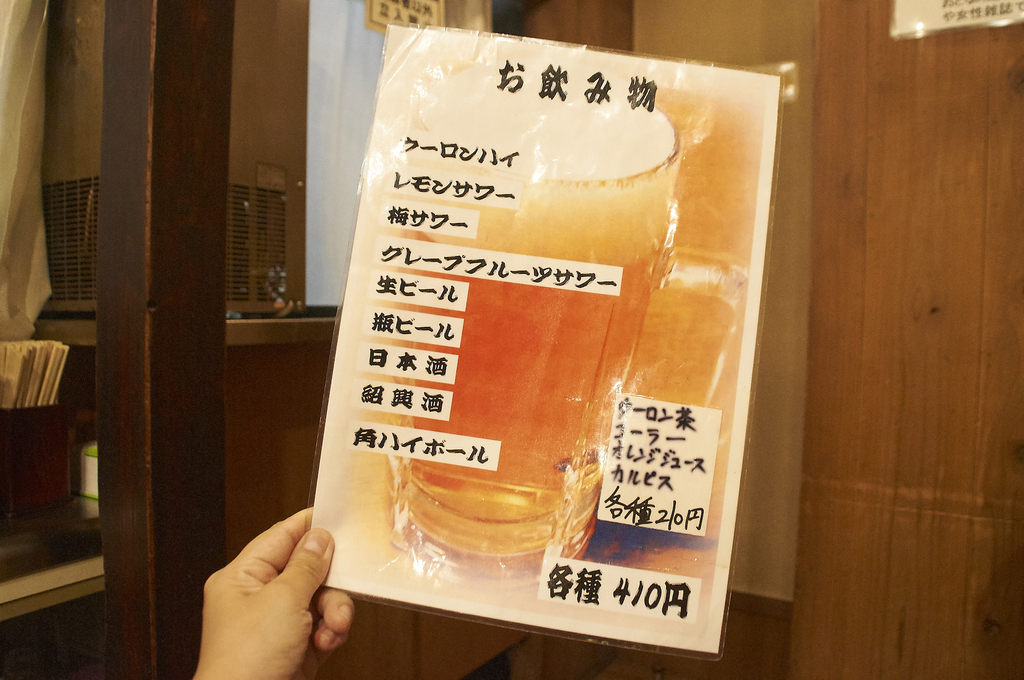 立入
や女性雑誌で
お飲み物
ウーロンハイ
レモンサワー
梅サワー
グレープフルーツサワー
生ビール
瓶ビール
日本酒
紹興酒
角ハイボール
ウーロン茶
コーラー
オレンジジュース
カルピス
各種210円
各種410円